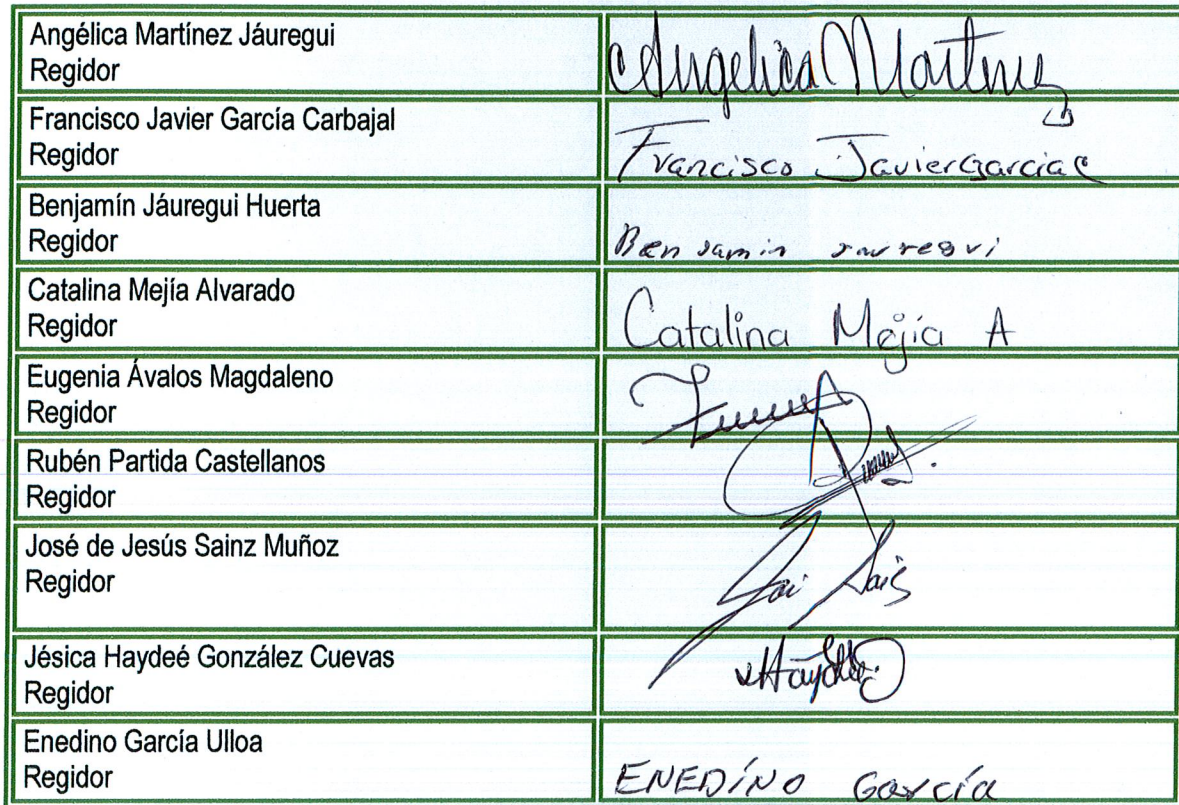 Angélica Martínez Jáuregui
Regidor
Angelica Martinez
Francisco Javier García Carbajal
Regidor
Francisco Javier Garcia C
Benjamín Jáuregui Huerta
Regidor
Benjamin Jauregui
Catalina Mejía Alvarado
Regidor
Catalina Mejía A
Eugenia Ávalos Magdaleno
Regidor
Rubén Partida Castellanos
Regidor
José de Jesús Sainz Muñoz
Regidor
Jésica Haydeé González Cuevas
Regidor
Haydee
Enedino García Ulloa
Regidor
ENEDÍNO García